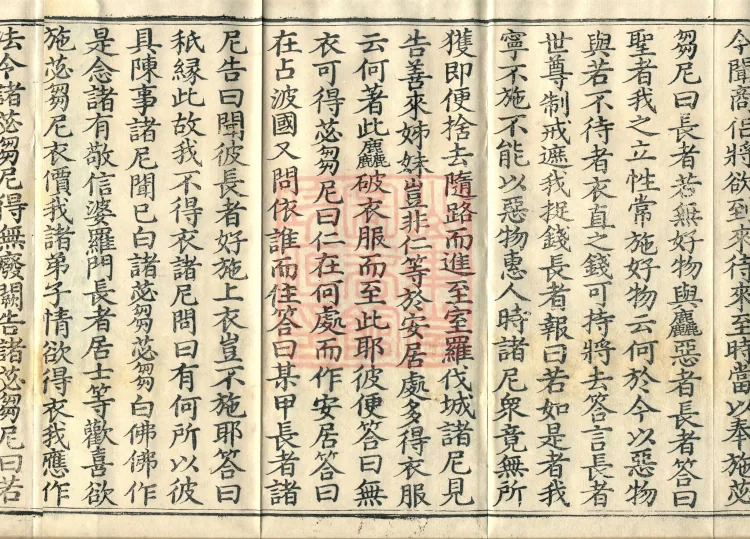 今聞商侶將欲到來待來至時當以奉施苾
芻尼曰長者若無好物與麤惡者長者答曰
聖者我之立性常施好物云何於今以惡物
與若不待者衣直之錢可持將去答言長者
世尊制戒遮我捉錢長者報曰若如是者我
寧不施不能以惡物惠人時諸尼衆竟無所
獲即便捨去隨路而進至室羅伐城諸尼見
告善來姊妹豈非仁等於安居處多得衣服
云何著此麤破衣服而至此耶彼便答曰無
衣可得苾芻尼曰仁在何處而作安居答曰
在占波國又問依誰而住答曰某甲長者諸
尼告曰聞彼長者好施上衣豈不施耶答曰
秖縁此故我不得衣諸尼問曰有何所以彼
具陳事諸尼聞已白諸苾芻苾芻白佛佛作
是念諸有敬信婆羅門長者居士等歡喜欲
施苾芻尼衣價我諸弟子情欲得衣我應作
法令諸苾芻尼得無廢闕告諸苾芻尼曰若